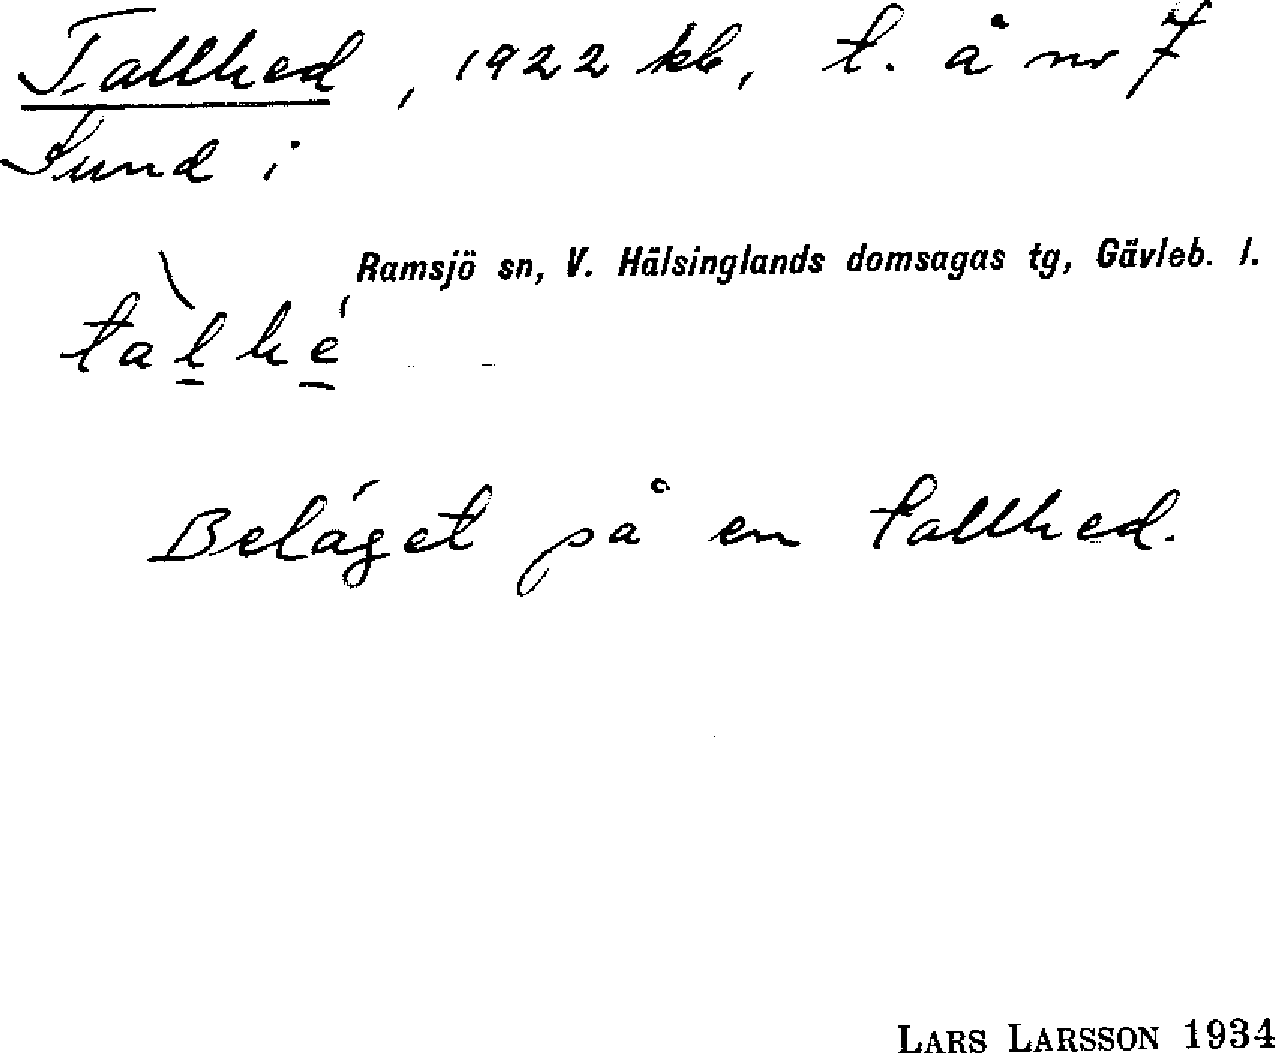 Tallhed, 1922 kb, t. å nr 7
Sund i
Ramsjö sn, V. Hälsinglands domsagas tg, Gävleb. l.
tàl̠hé̠
Beläget på en tallhed.
LARS LARSSON 1934